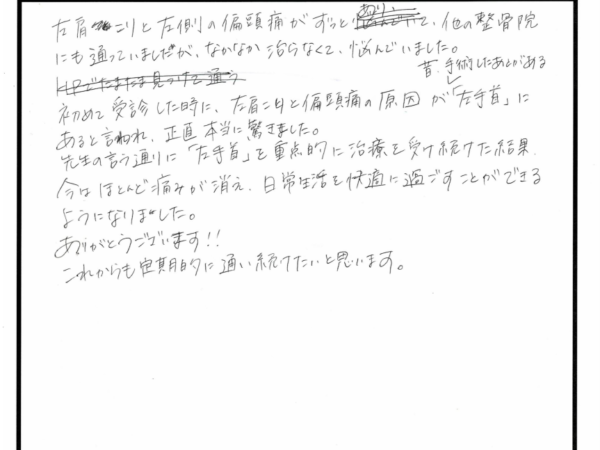 左肩こりと左側の偏頭痛がずっとあり、他の整骨院
にも通っていましたが、なかなか治らなくて、悩んでいました。
HPでたまたま見つけて通う
昔、手術したあとがある
初めて受診した時に、左肩こりと偏頭痛の原因が「左手首」に
あると言われ、正直本当に驚きました。
先生の言う通りに「左手首」を重点的に治療を受け続けた結果、
今はほとんど痛みが消え、日常生活を快適に過ごすことができる
ようになりました。
ありがとうございます!!
これからも定期的に通い続けたいと思います。